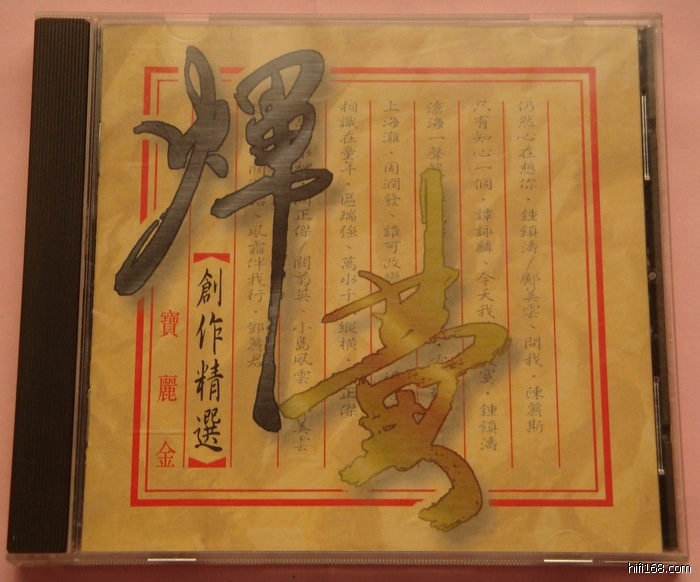 輝黃
【創作精選】
寶麗金
仍然心在想你．鍾鎮濤／鄺美雲、問我．陳麗斯
只有知心一個．譚詠麟、今天我
鍾鎮濤
滄海一聲
上海灘、周潤發、誰可改變
相識在童年．區瑞強、萬水千山縱橫．
正傑
關正傑／關菊英、小島風雲
美雲
風霜伴我行．鄧麗君
hifi168.com